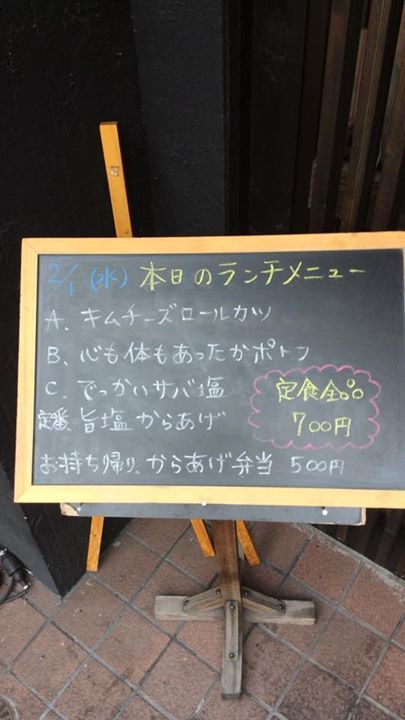 2/1 (水) 本日のランチメニュー
A. キムチーズロールカツ
B. 心も体もあったかポトフ
C. でっかいサバ塩
定番 旨塩からあげ
定食全品
700円
お持ち帰り. からあげ弁当 500円